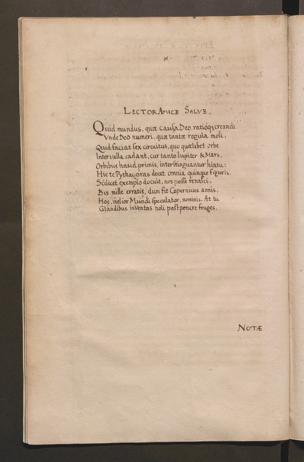 LECTOR AMICE SALVE.
Quid mundus, quæ causa Deo, ratioq; creandi,
Vnde Deo numeri, quæ tantæ regula moli,
Quid faciat sex circuitus, quo quælibet orbe
Intervalla cadant, cur tanto Iupiter & Mars,
Orbibus haud primis, interstinguantur hiatu:
Hic te Pythagoras docet omnia quinque figuris.
Scilicet exemplo docuit, nos posse renasci,
Bis mille erratis, dum fit Copernicus annis,
Hoc, melior Mundi speculator, nominis. At tu
Glandibus inventas noli postponere fruges.
NOTÆ